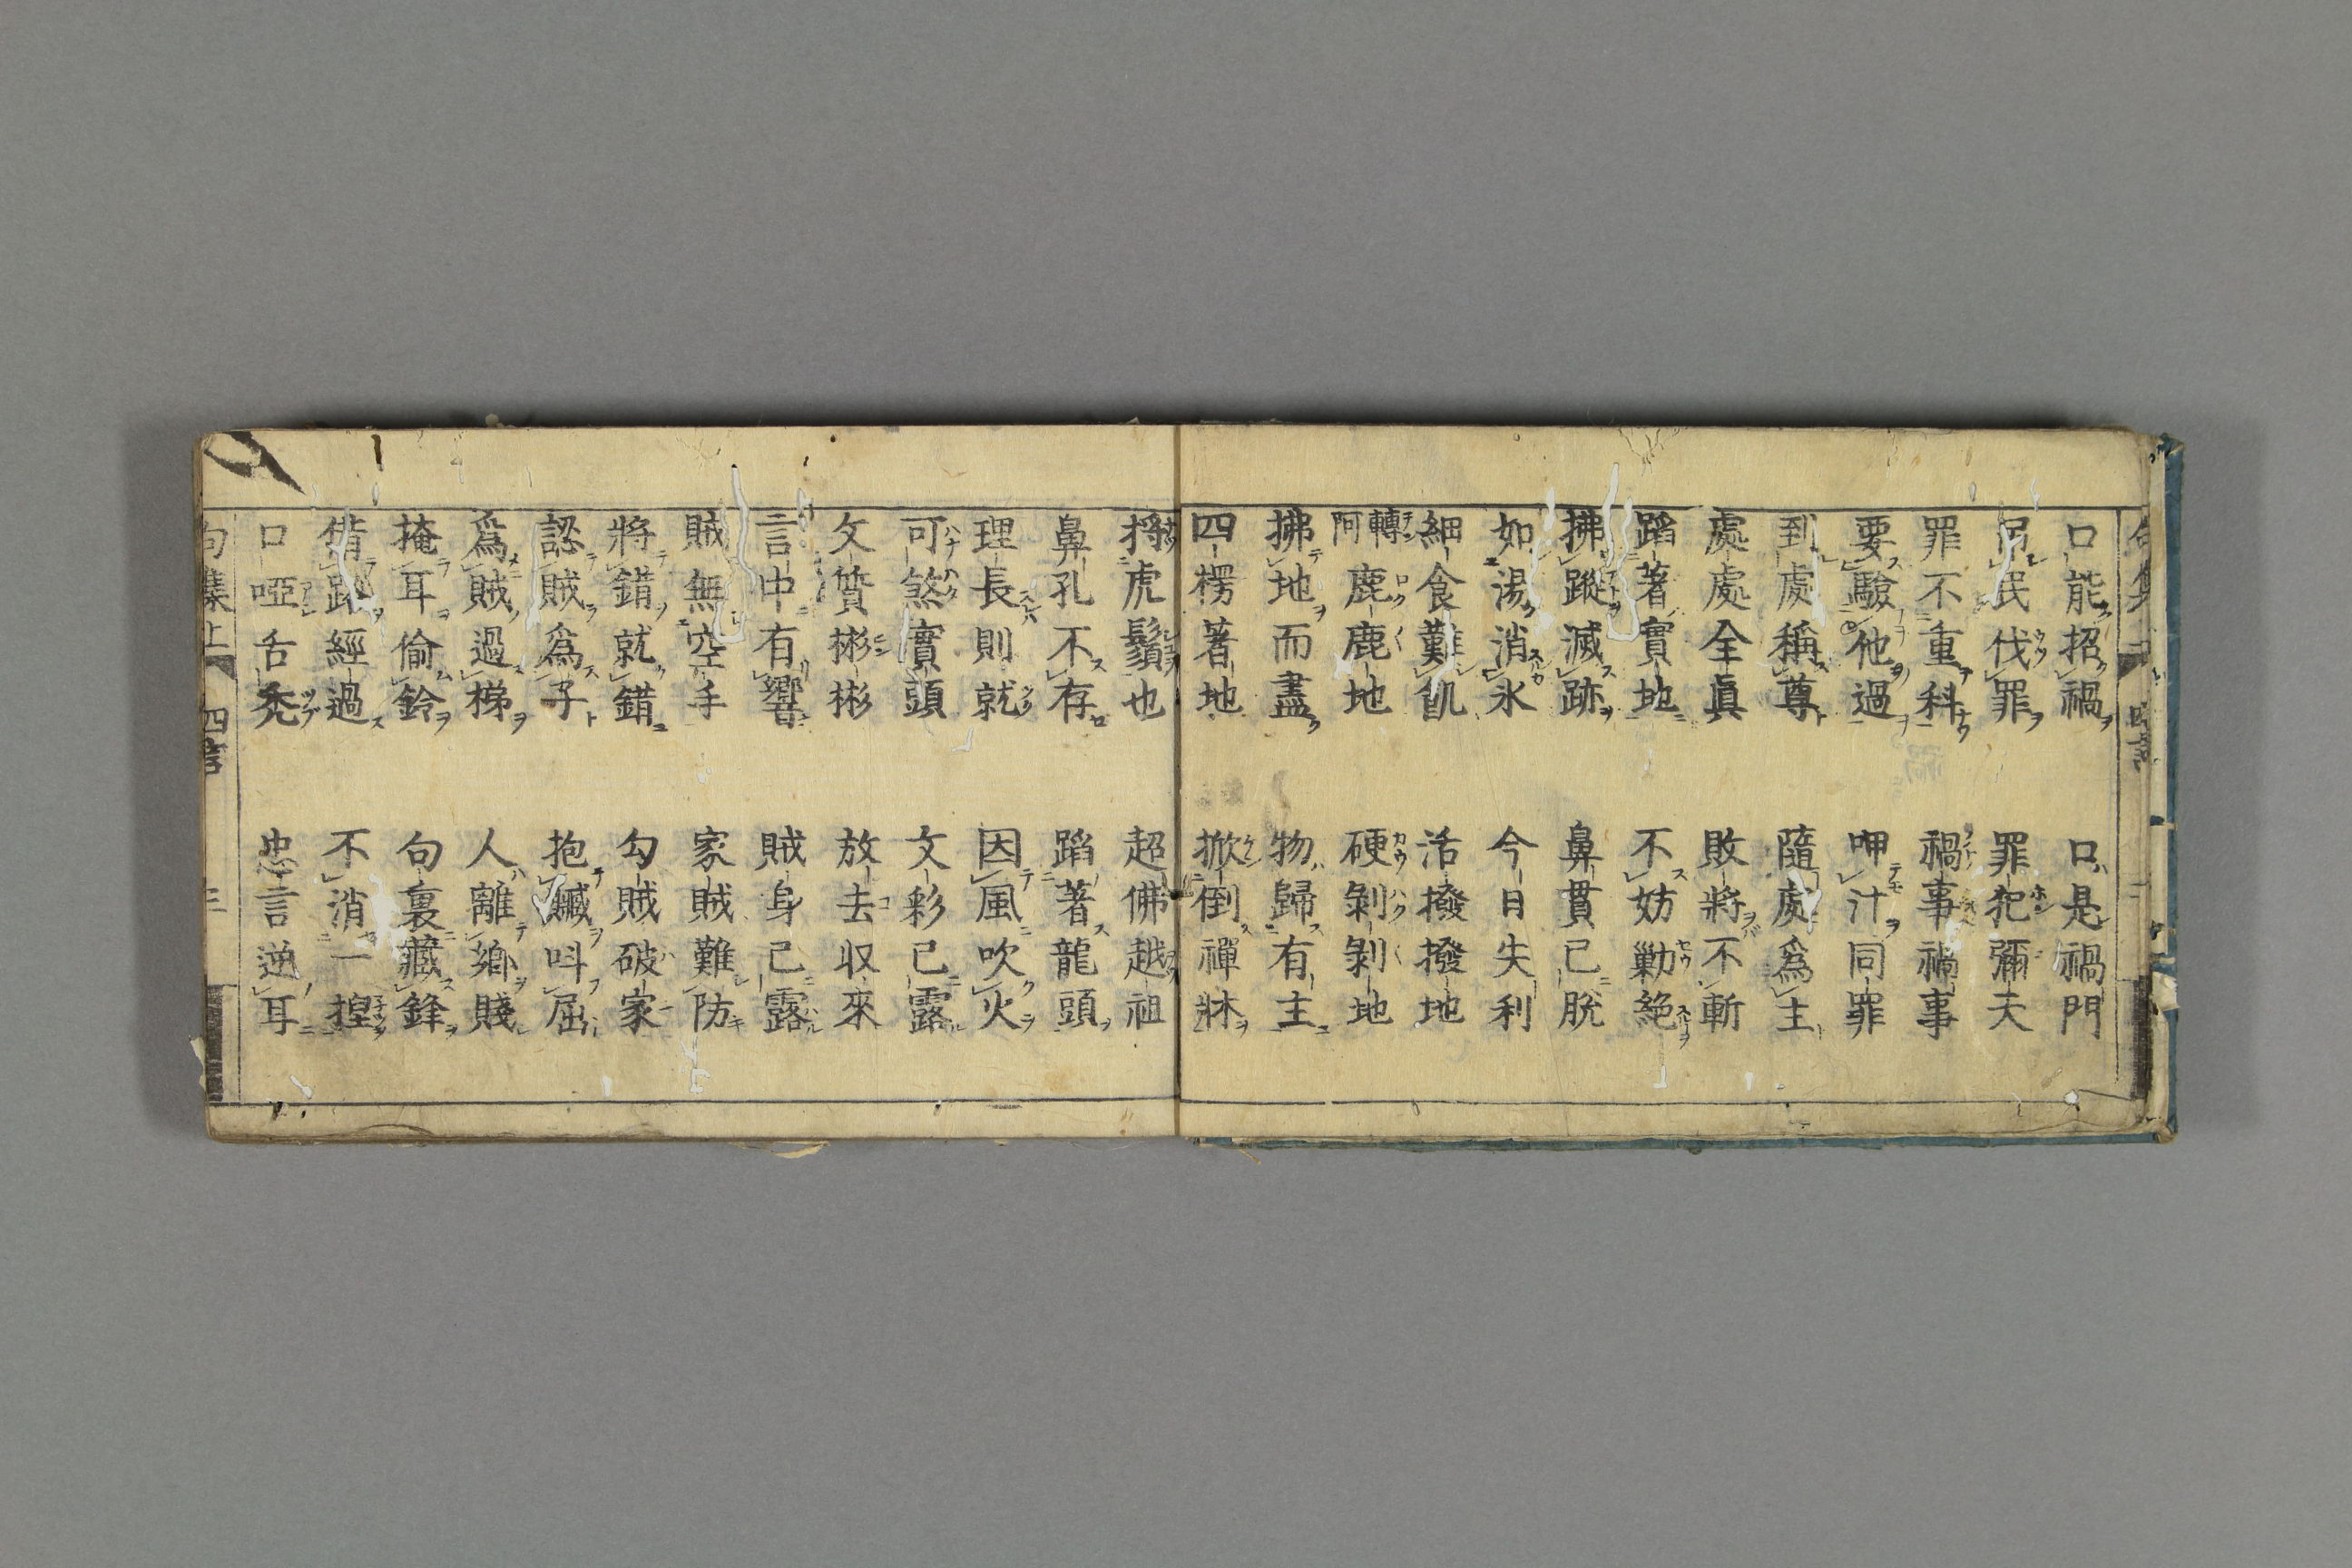 口能招禍
口是禍門
吊民伐罪
罪犯彌天
罪不重科
禍事禍事
要驗他過
呷汁同罪
到處稱尊
隨處爲主
處處全眞
敗將不斬
蹈著實地
不妨勦絶
拂蹤滅跡
鼻貫已脱
如湯消氷
今日失利
細食難飢
活撥撥地
阿轉鹿鹿地
硬剝剝地
拂地而盡
物歸有主
四楞著地
掀倒禪牀
捋虎鬚也
超佛越祖
鼻孔不存
蹈著龍頭
理長則就
因風吹火
可煞實頭
文彩已露
文質彬彬
放去収來
言中有響
賊身已露
賊無空手
家賊難防
將錯就錯
勾賊破家
認賊爲子
抱贓呌屈
爲賊過梯
人離鄉賤
掩耳偷鈴
句裏藏鋒
經過
不消一揑
口啞舌禿
忠言逆耳
句集上 四言